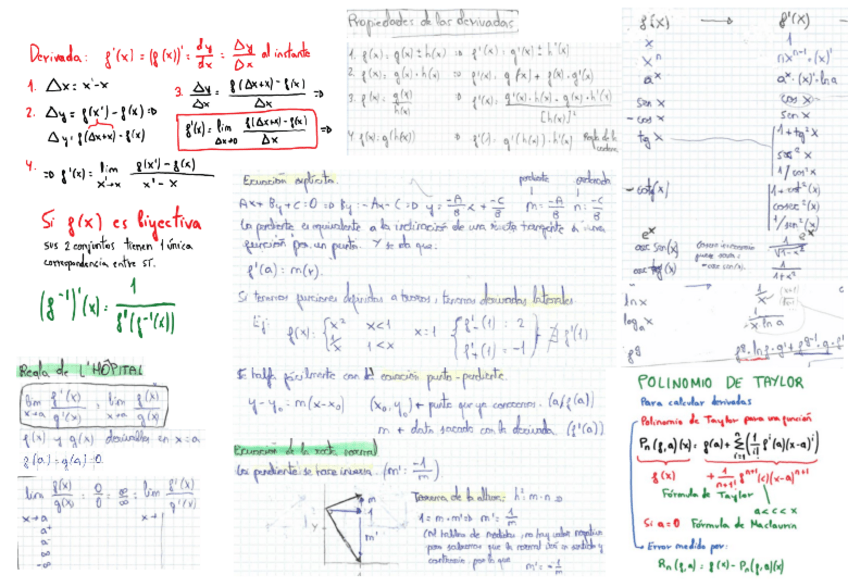 Derivada: f'(x) = (f(x))' = dy/dx = Δy/Δx al instante
1. Δx = x' - x
2. Δy = f(x') - f(x) =>
Δy = f(Δx+x) - f(x)
3. Δy/Δx = f(Δx+x) - f(x) / Δx =>
f'(x) = lim Δx→0 f(Δx+x) - f(x) / Δx =>
4. => f'(x) = lim x'→x f(x') - f(x) / x' - x
Si f(x) es biyectiva
sus 2 conjuntos tienen 1 única
correspondencia entre sí.
(f⁻¹)'(x) = 1 / f'(f⁻¹(x))
Regla de L'HÔPITAL
lim x→a f'(x)/g'(x) = lim x→a f(x)/g(x)
f(x) y g(x) derivables en x = a
f(a) = g(a) = 0
lim f(x)/g(x) = 0/0 = ∞/∞ = lim f'(x)/g'(x)
x→a
a⁺
a⁻
∞
-∞
Propiedades de las derivadas
1. f(x) = g(x) ± h(x) => f'(x) = g'(x) ± h'(x)
2. f(x) = g(x) · h(x) =>
3. f(x) = g(x)/h(x) => f'(x) = g'(x) · h(x) - g(x) · h'(x) / [h(x)]²
4. f(x) = g(h(x)) => f'( ) = g'(h(x)) · h'(x) Regla de la cadena
Ecuación explícita.
pendiente ordenada
Ax + By + C = 0 => By = -Ax - C => y = -A/B x + -C/B m = -A/B n = -C/B
La pendiente es equivalente a la inclinación de una recta tangente a una
función por un punto. Y se da que:
f'(a) = m(r).
Si tenemos funciones definidas a trozos, tenemos derivadas laterales
Ej: f(x) = { x² x<1 1/x 1<x x = 1 { f'₋(1) = 2 f'₊(1) = -1 } ∄ f'(1)
Se halla fácilmente con la ecuación punto-pendiente.
y - y₀ = m(x - x₀) (x₀, y₀) + punto que ya conocemos. (a, f(a))
m + dato sacado con la derivada (f'(a))
Ecuación de la recta normal
La pendiente se hace inversa. (m' = -1/m)
m
1
m'
Teorema de la altura: h² = m · n =>
1 = m · m' => m' = 1/m
m' = -1/m
f(x) → f'(x)
x 1
xⁿ nxⁿ⁻¹ · (x)'
aˣ aˣ · (x)' · ln a
sen x cos x
-cos x sen x
tg x 1 + tg² x
sec² x
1/cos² x
-cotg(x) 1 + cot² (x)
cosec² (x)
1/sen² (x)
eˣ eˣ
arc sen(x) 1/√1-x²
arc tg(x) 1/1+x²
ln x 1/x
logₐ x 1/x ln a
f^g f^g · ln f · g' + f^(g-1) · g · f'
POLINOMIO DE TAYLOR
Para calcular derivadas
Polinomio de Taylor para una función
Pₙ(f,a)(x) = f(a) + Σ (1/i! fⁱ(a)(x-a)ⁱ)
f(x) + 1/n+1! fⁿ⁺¹(c)(x-a)ⁿ⁺¹
Fórmula de Taylor
a < c < x
Si a = 0 Fórmula de Maclaurin
Error medido por:
Rₙ(f,a) = f(x) - Pₙ(f,a)(x)